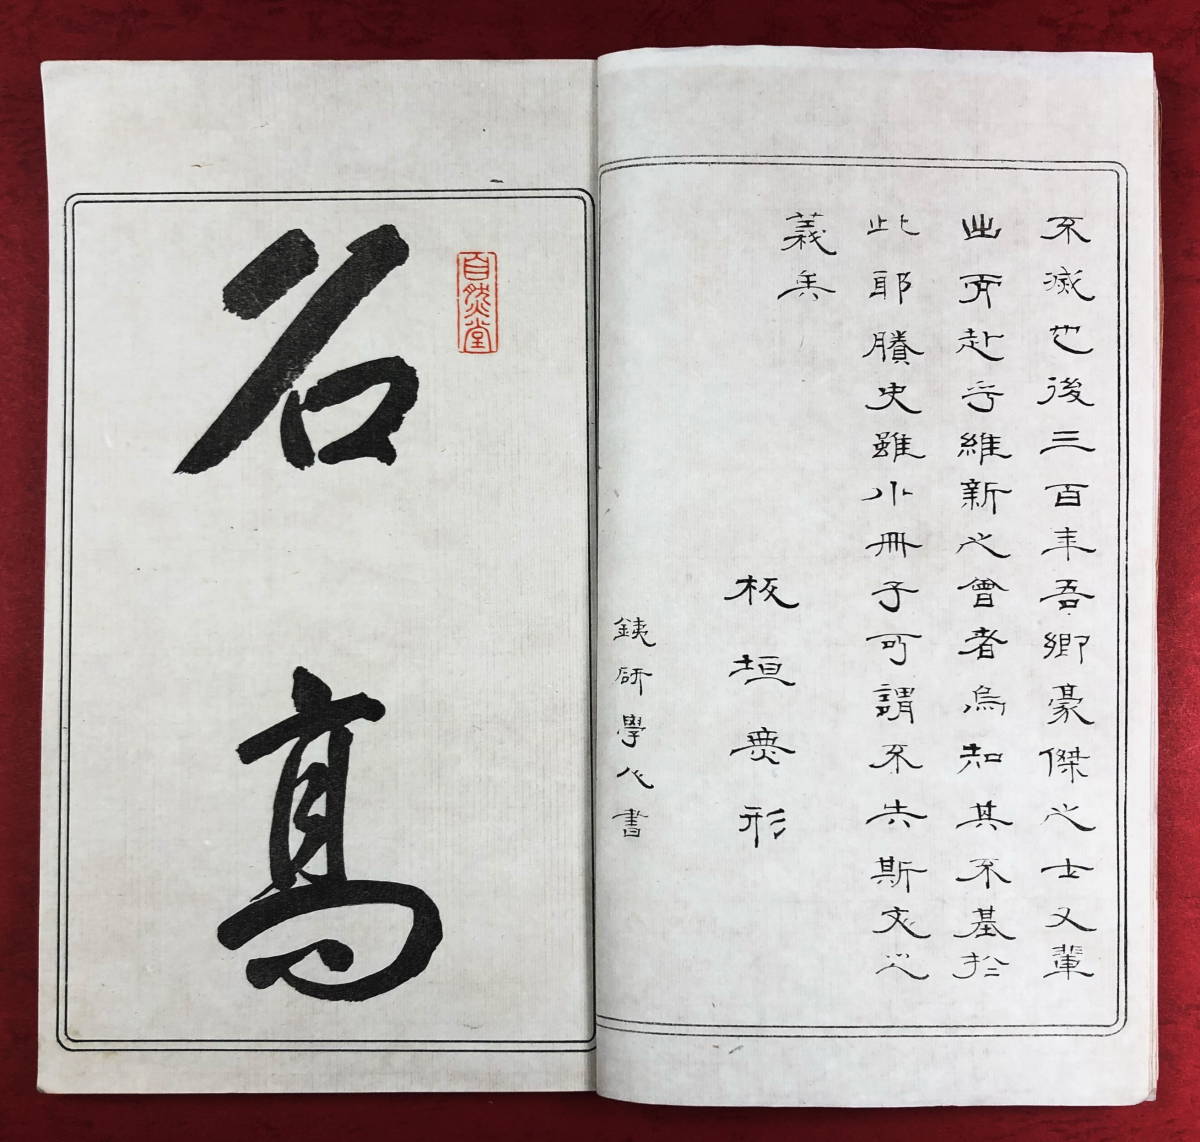 不滅也後三百年吾鄉豪傑之士又輩
出而赴乎維新之會者烏知其不基於
此耶賸史雖小冊子可謂不失斯文之
義矣
板垣形
銕研學人書
自然堂
名高